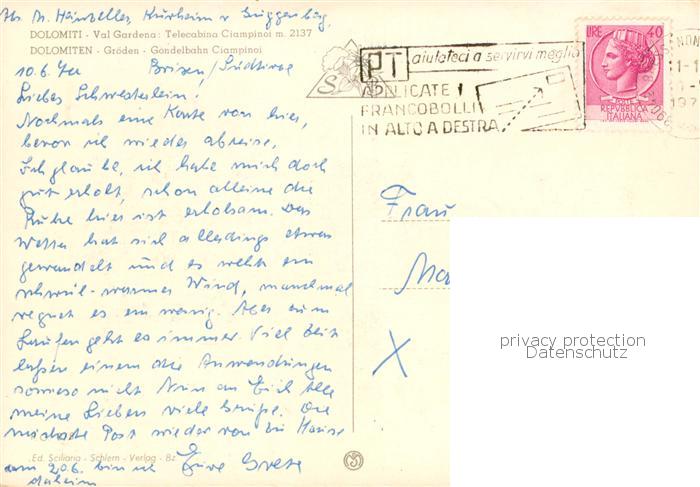 Abs. M. Heinzeller, Kurheim v. Guggenberg,
DOLOMITI - Val Gardena: Telecabina Ciampinoi m. 2137
DOLOMITEN - Gröden - Gondelbahn Ciampinoi
10.6.70 Brixen/Südtirol
Liebes Schwesterlein.
Nochmals eine Karte von hier,
bevor ich wieder abreise.
Ich glaube, ich habe mich doch
gut erholt, schon alleine die
Ruhe hier ist erholsam. Das
Wetter hat sich allerdings etwas
gewandelt und es weht ein
schwül-warmer Wind, manchmal
regnet es ein wenig. Aber zum
Laufen geht es immer. Viel Zeit
laßen einem die Anwendungen
sowieso nicht. Nun an Euch alle
meine Lieben viele Grüße. Die
nächste Post wieder von zu Hause
am 20.6. bin ich Eure Grete
daheim
Ed. Sciliaria - Schlern - Verlag - Bz
PT aiutateci a servirvi meglio
APPLICATE I
FRANCOBOLLI
IN ALTO A DESTRA
LIRE 40
REPUBBLICA
ITALIANA
Frau
X
privacy protection
Datenschutz